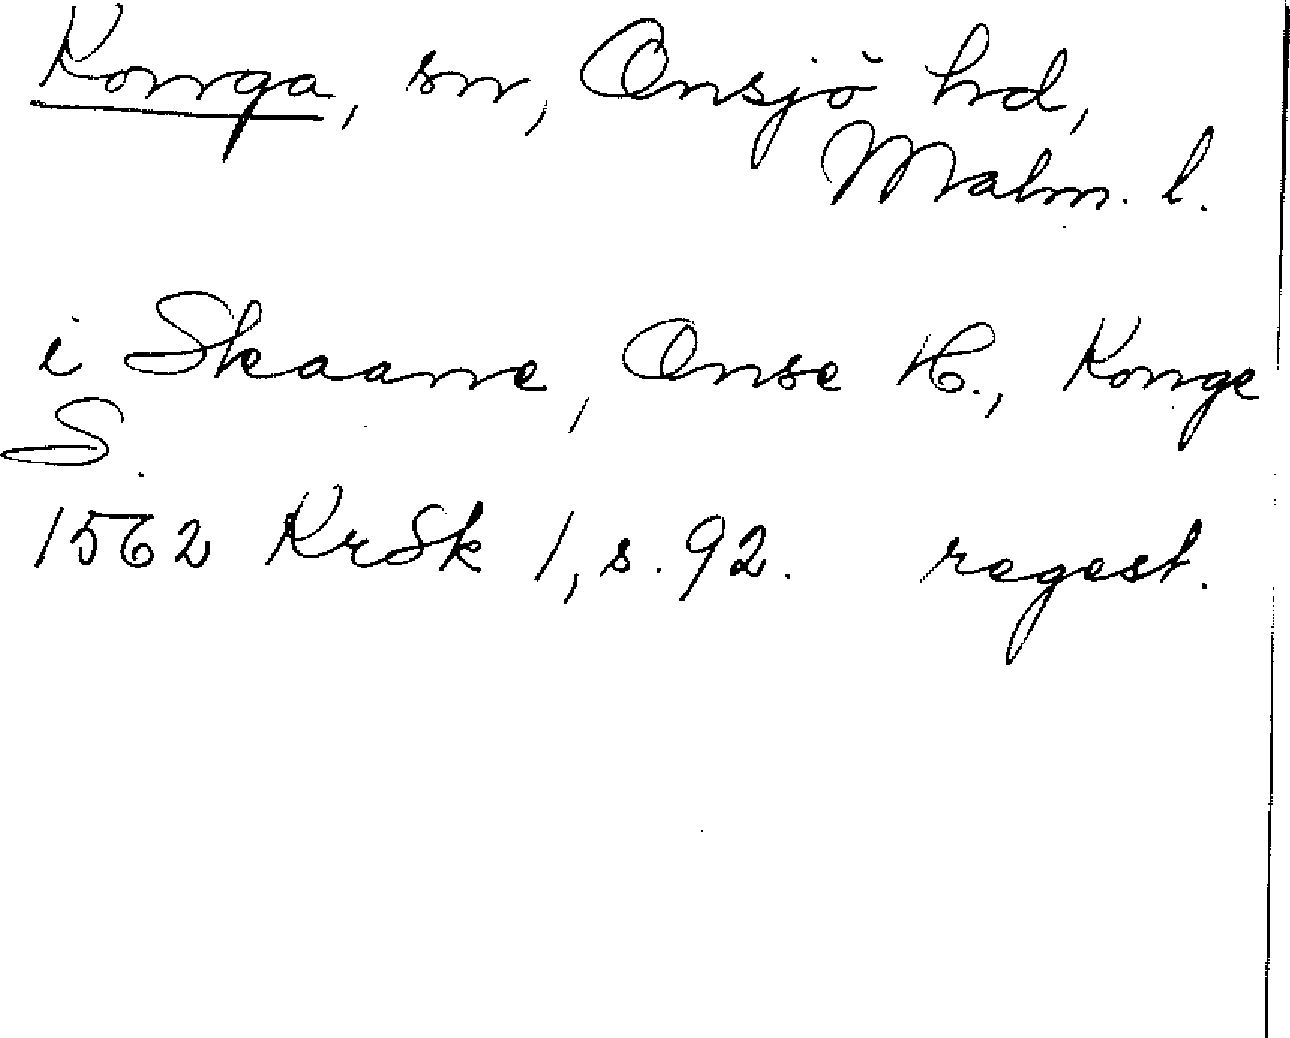 Konga, sn, Onsjö hd,
Malm. l.
i Skaane, Onse H., Konge
S.
1562 KrSk 1, s. 92. regest.